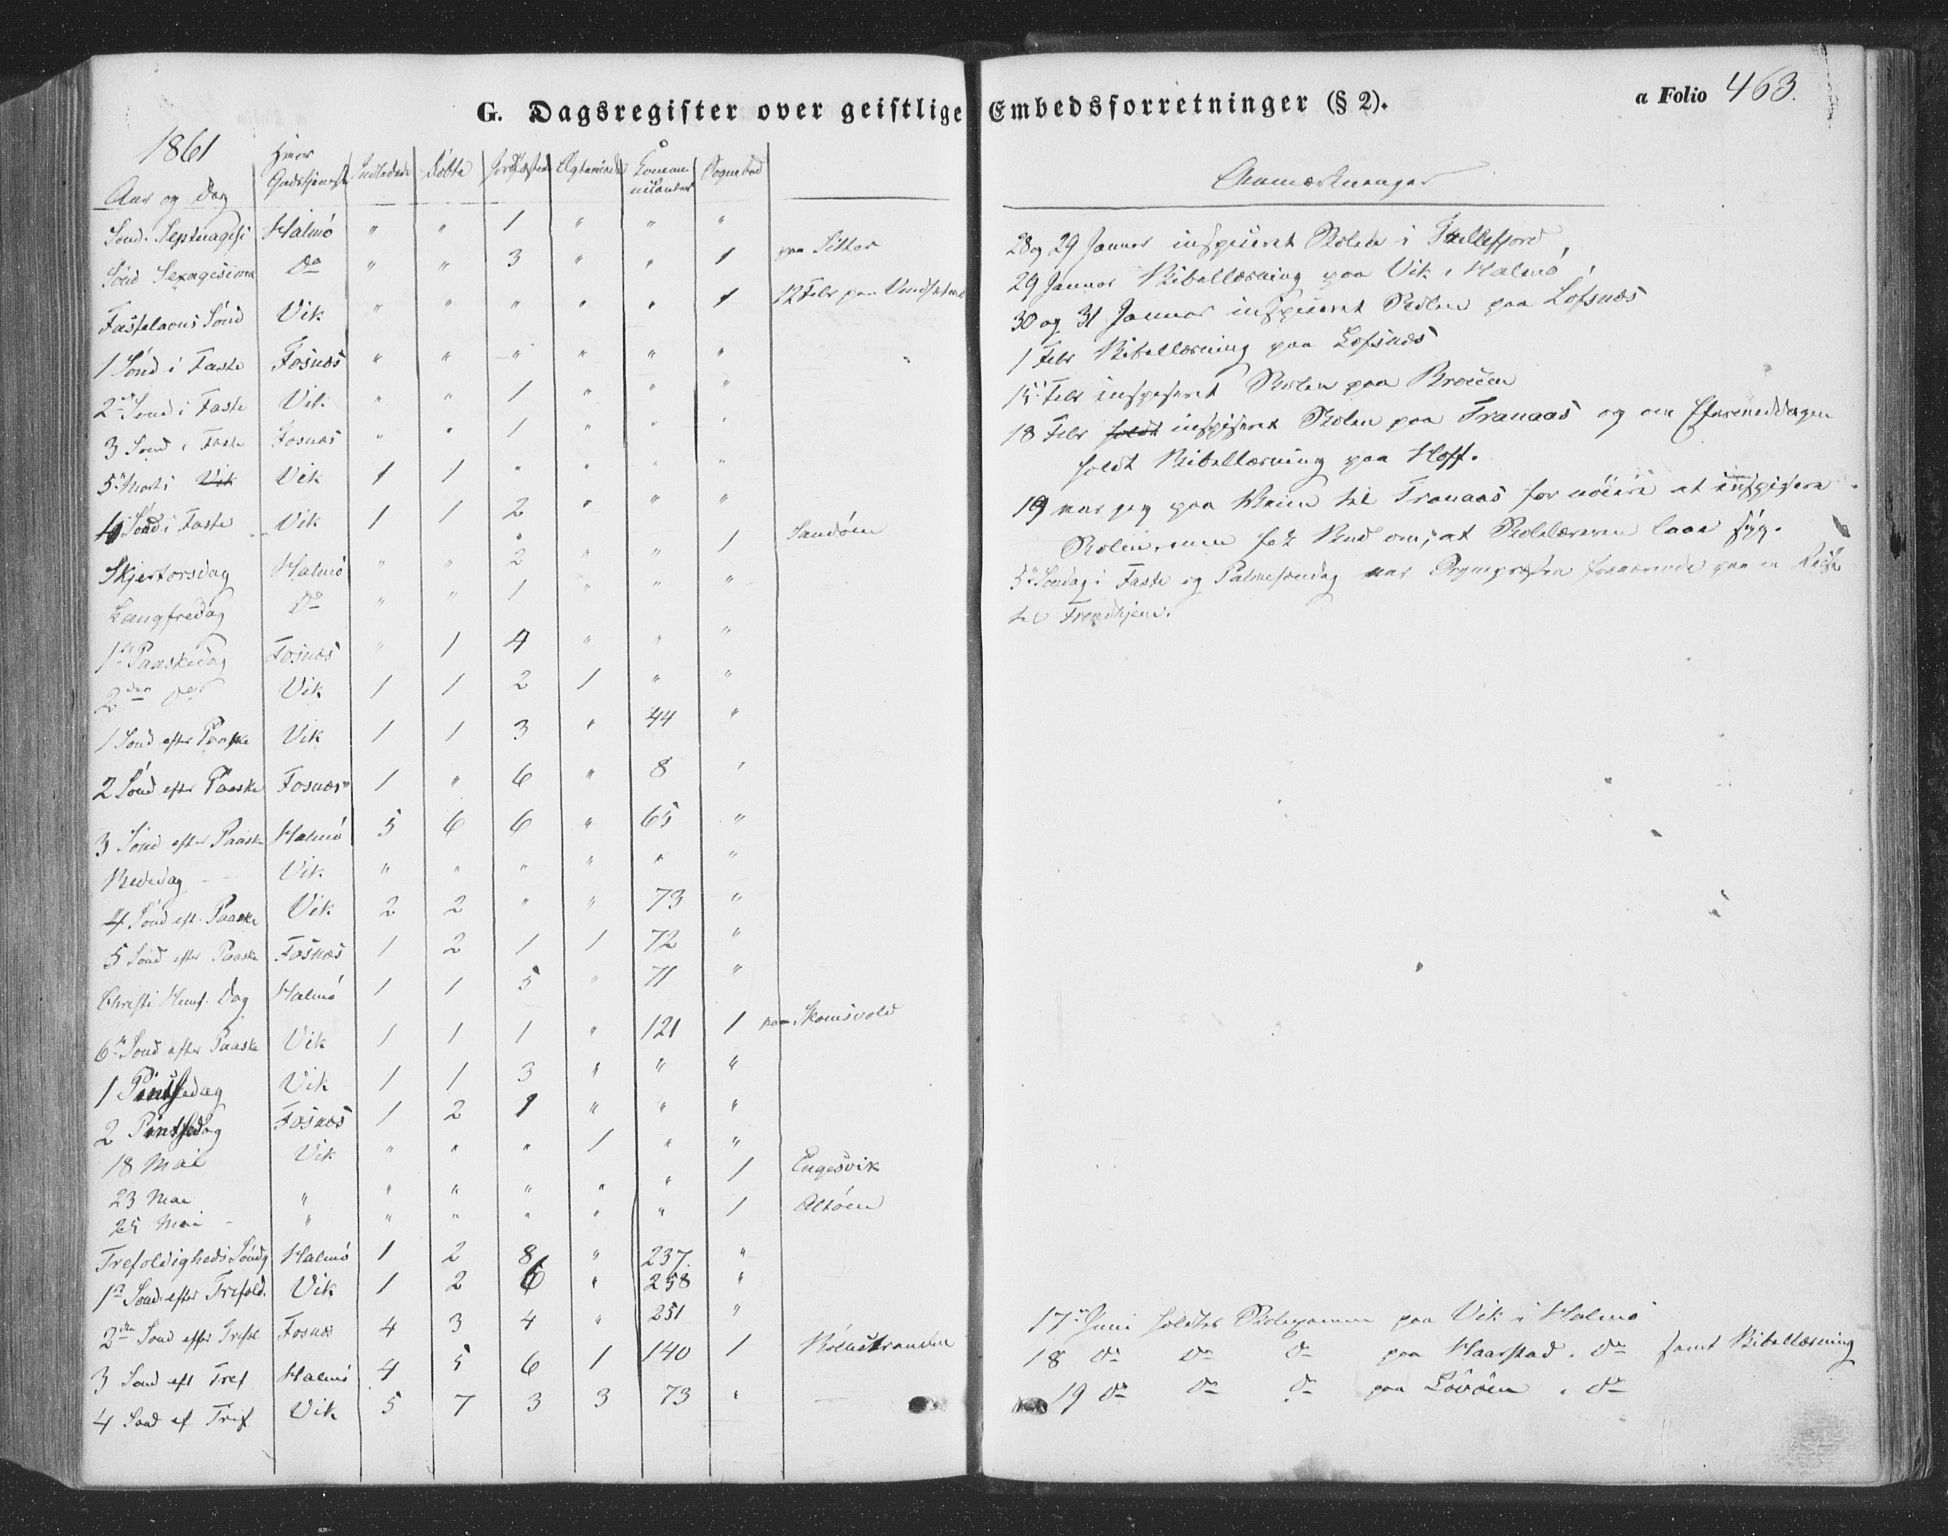 G. Dagsregister over geistlige Embedsforretninger (§ 2).
a Folio 463.
1861
Aar og Dag | Hvor Gudstjeneste | Indledede | Döbte | Jordfæstede | Ægteviede | Communikanter | Sognebud
Sönd. Septuagesi | Halmö | " | " | 1 | " | " | "
Sönd Sexagesima | Do | " | " | 3 | " | " | 1 | paa Sitter
Fastelavns Sönd | Vik | " | " | " | " | " | 1 | 12 Febr paa
1 Sönd i Faste | Fosnæs | " | " | " | " | " | "
2den Sönd i Faste | Vik | " | " | 1 | " | " | "
3 Sönd i Faste | Fosnæs | " | " | 1 | " | " | "
5 Marts Vik | Vik | 1 | 1 | " | " | " | "
4 Sönd i Faste | Vik | 1 | 1 | 2 | " | " | "
Skjertorsdag | Halmö | " | " | 2 | " | " | 1 | Sandöen
Langfredag | Do | " | " | 1 | " | " | "
1ste Paaskedag | Fosnæs | " | 1 | 4 | " | " | "
2den Do | Vik | 1 | 1 | 2 | 1 | " | "
1 Sönd efter Paaske | Vik | 1 | 1 | 3 | " | 44 | "
2 Sönd efter Paaske | Fosnæs | 1 | " | 6 | " | 8 | "
3 Sönd efter Paaske | Halmö | 5 | 6 | 6 | " | 65 | "
Bededag | Vik | " | " | " | " | " | "
4 Sönd eft. Paaske | Vik | 2 | 2 | " | " | 73 | "
5 Sönd efter Paaske | Fosnæs | 1 | 2 | 1 | 1 | 72 | "
Christi Himf. Dag | Halmö | 1 | 1 | 5 | " | 71 | "
6te Sönd efter Paaske | Vik | 1 | 1 | 1 | " | 121 | 1 | paa Skomsvold
1 Pintsedag | Vik | 1 | 1 | 3 | " | " | "
2 Pintsedag | Fosnæs | 1 | 2 | 1 | " | " | "
18 Mai | Vik | " | " | " | 1 | " | "
23 Mai | " | " | " | " | " | " | 1 | Engesvik
25 Mai | " | " | " | " | " | " | 1 | Altöen
Trefoldigheds Söndg | Halmö | 1 | 2 | 8 | " | 237. | "
1ste Sönd. efter Trefold. | Vik | 1 | 2 | 6 | " | 258 | "
2den Sönd efter Trefol | Fosnæs | 4 | 3 | 4 | " | 251 | "
3 Sönd eft Tref | Halmö | 4 | 5 | 6 | 1 | 140 | 1
4 Sönd ef Tref | Vik | 5 | 7 | 3 | 3 | 73 | "
Anmærkninger
28 og 29 Januar inspiceret Skolen i
29 Januar Bibellæsning paa Vik i Halmö
30 og 31 Januar inspiceret Skolen paa Lofsnæs
1 Febr Bibellæsning paa Lofsnæs
15 Febr inspiceret Skolen paa
18 Febr holdt inspiceret Skolen paa Tranaas og om Eftermiddagen
holdt Bibellæsning paa Hoff.
19 var jeg paa Veien til Tranaas for at inspicere
Skolen, men fik Bud om, at Skolelæreren laae syg.
5te Söndag i Faste og Palmesöndag var Sognepræsten fraværende paa en Reise
til Trondhjem.
17de Juni holdtes Skoleexamen paa Vik i Halmö
18 Do Do Do paa Haarstad. Do samt Bibellæsning
19 Do Do Do paa Lövöen. Do